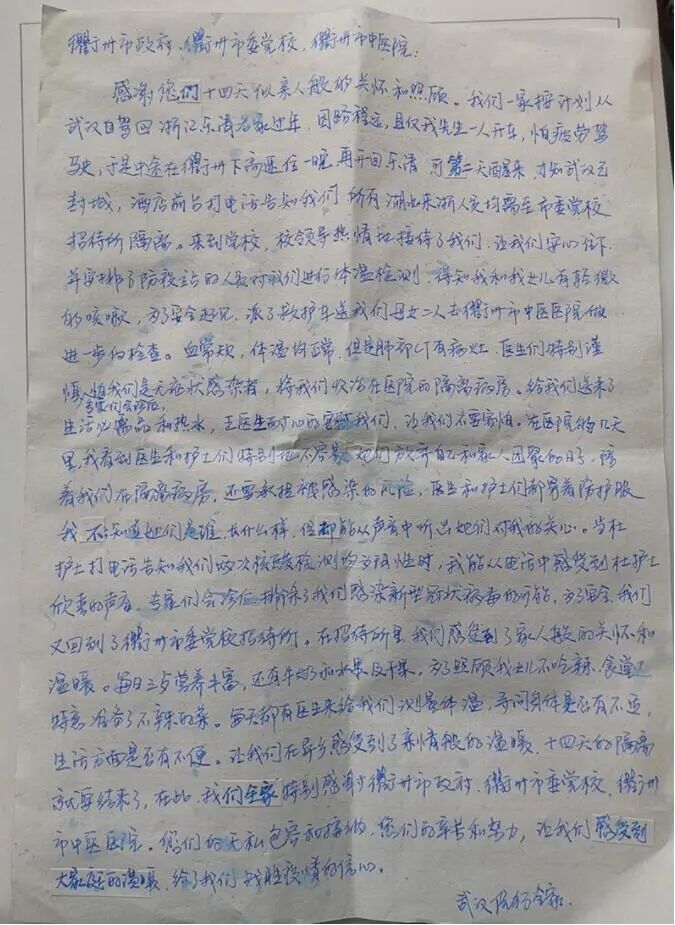 衢州市政府、衢州市委党校、衢州市中医院：
感谢您们十四天似亲人般的关怀和照顾。我们一家按计划从
武汉自驾回浙江乐清老家过年，因路程远，且仅我先生一人开车，怕疲劳驾
驶，于是中途在衢州下高速住一晚，再开回乐清，可第二天醒来，才知武汉已
封城，酒店前台打电话告知我们所有湖北来浙人员均需至市委党校
招待所隔离。来到学校，校领导热情地接待了我们，让我们安心住下，
并安排了防疫站的人员对我们进行体温检测，得知我和我女儿有轻微
的咳嗽，为了安全起见，派了救护车送我们母女二人去衢州市中医医院做
进一步的检查。血常规，体温均正常，但是肺部CT有病灶，医生们特别谨
慎，怕我们是无症状感染者，将我们收治在医院的隔离病房。给我们送来了
专家们会诊后，
生活必需品和热水，王医生耐心的安慰我们，让我们不要害怕。在医院的几天
里，我看到医生和护士们特别地不容易，她们放弃自己和家人团聚的日子，陪
着我们在隔离病房，还要承担被感染的风险，医生和护士们都穿着防护服
我不知道她们是谁，长什么样，但却能从声音中听出她们对我的关心。当杜
护士打电话告知我们两次核酸检测均为阴性时，我能从电话中感受到杜护士
欣喜的声音，专家们会诊后排除了我们感染新型冠状病毒的可能，为了安全，我们
又回到了衢州市委党校招待所。在招待所里，我们感受到了家人般的关怀和
温暖。每日三餐营养丰富，还有牛奶和水果及干果，为了照顾我女儿不吃辣，食堂
特意准备了不辣的菜。每天都有医生来给我们测量体温，寻问身体是否有不适，
生活方面是否有不便。让我们在异乡感受到了亲情般的温暖，十四天的隔离
就要结束了，在此，我们全家特别感谢衢州市政府，衢州市委党校，衢州
市中医医院。您们的无私包容和接纳，您们的辛苦和努力，让我们感受到
大家庭的温暖，给了我们战胜疫情的信心。
武汉 全家